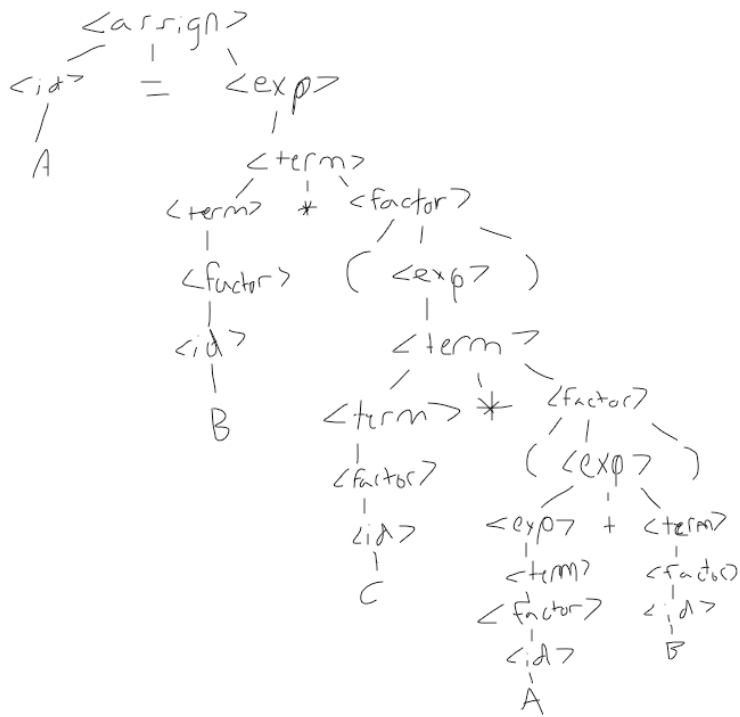 <assign>
<id> = <exp>
A
<term>
<term> * <factor>
<factor> ( <exp> )
<id> <term>
B <term> * <factor>
<factor> ( <exp> )
<id> <exp> + <term>
C <term> <factor>
<factor> <id>
<id> B
A